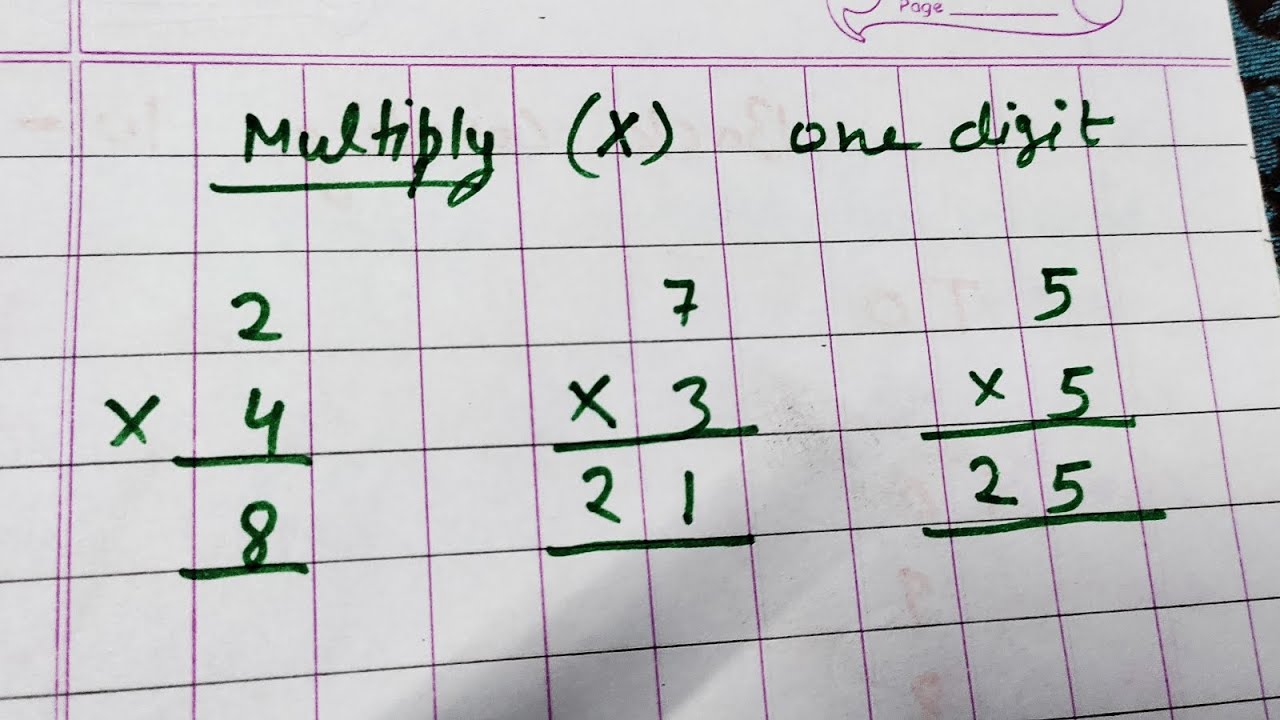 Page
Multiply (X) one digit
2 7 5
X 4 X 3 x 5
8 21 25